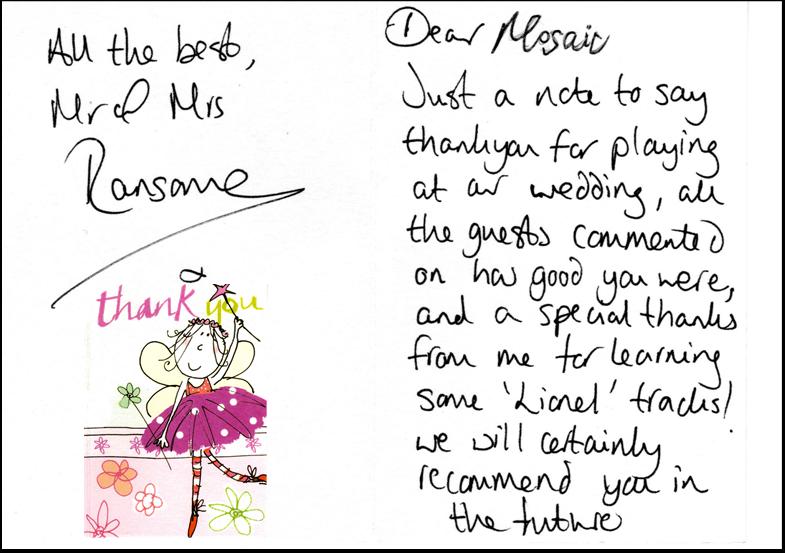 Dear Mosaic
Just a note to say
thankyou for playing
at our wedding, all
the guests commented
on how good you were,
and a special thanks
from me for learning
some 'Lionel' tracks!
we will certainly
recommend you in
the future
All the best,
Mr & Mrs
Ransome
thank you